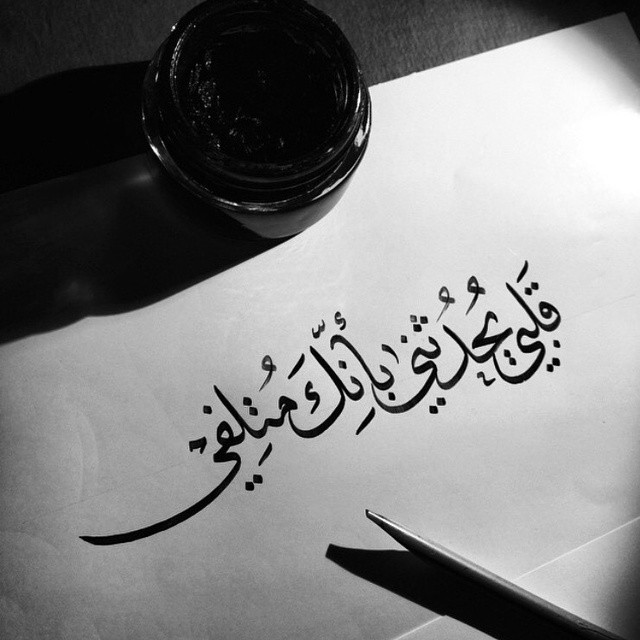 قَلبي يُحدُثُني بأنّكَ مُتلِفي